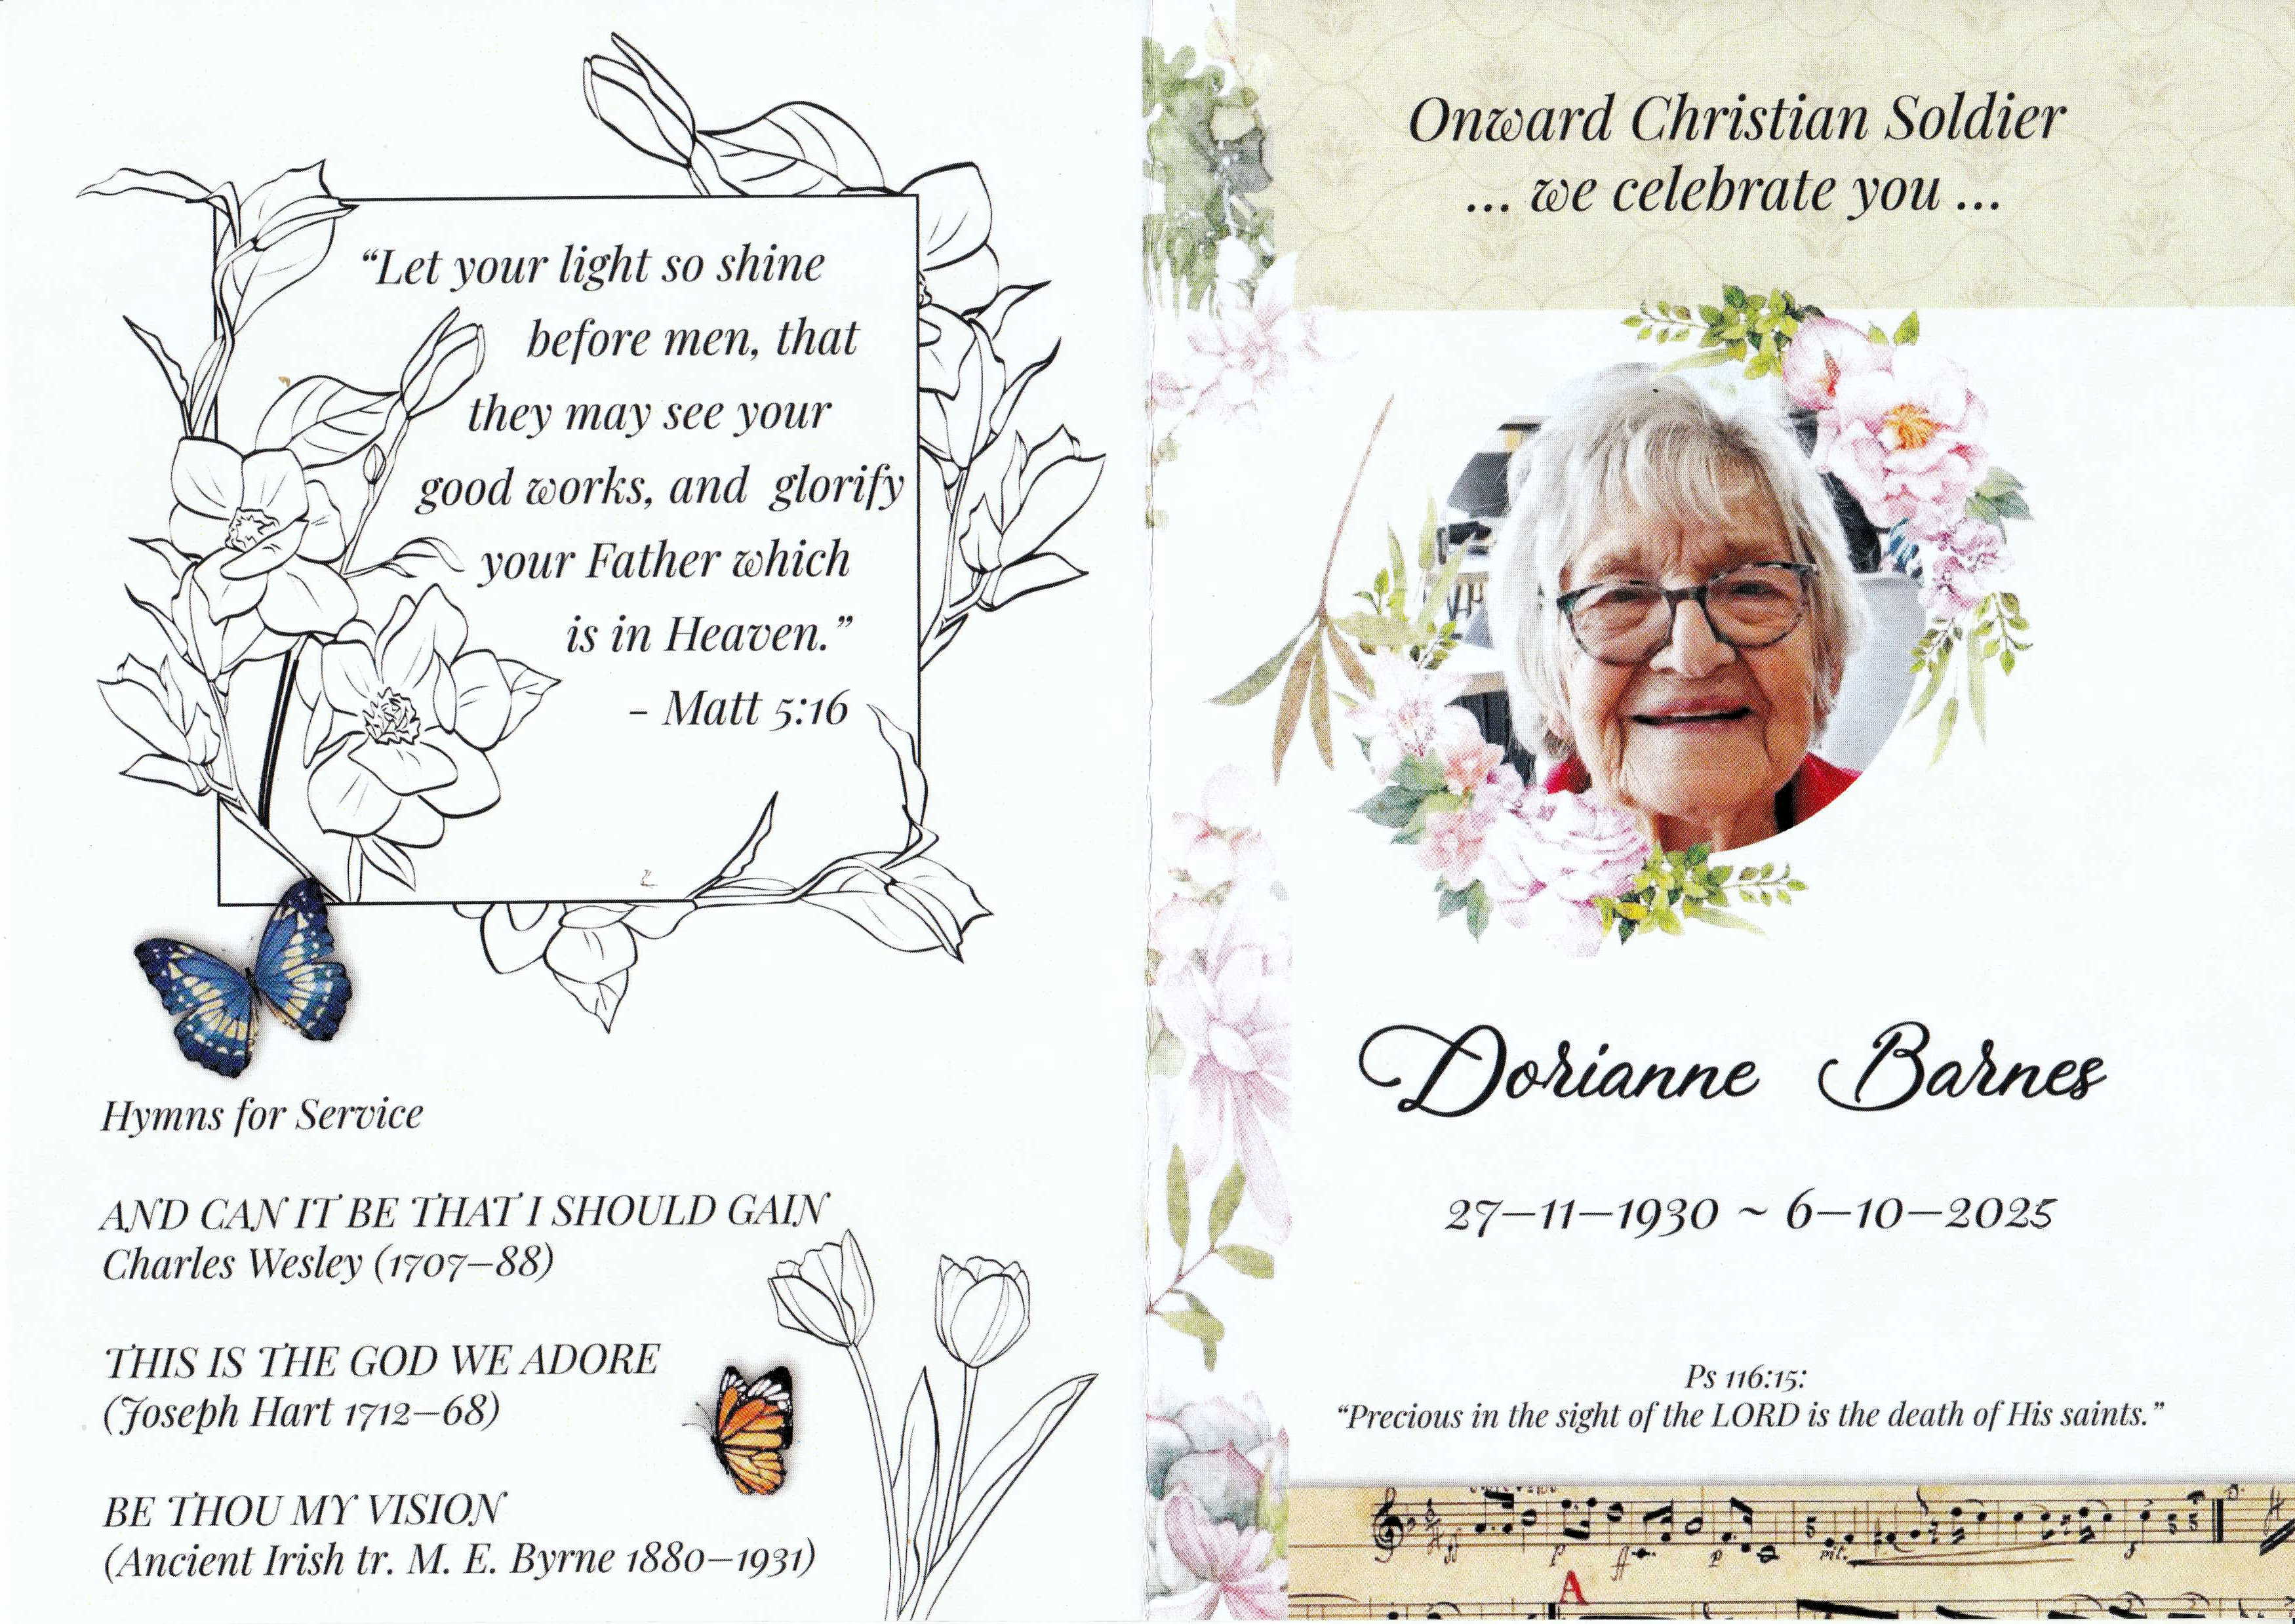 “Let your light so shine
before men, that
they may see your
good works, and glorify
your Father which
is in Heaven.”
– Matt 5:16
Hymns for Service
AND CAN IT BE THAT I SHOULD GAIN
Charles Wesley (1707–88)
THIS IS THE GOD WE ADORE
(Joseph Hart 1712–68)
BE THOU MY VISION
(Ancient Irish tr. M. E. Byrne 1880–1931)
Onward Christian Soldier
... we celebrate you ...
Dorianne Barnes
27–11–1930 ~ 6–10–2025
Ps 116:15:
“Precious in the sight of the LORD is the death of His saints.”
p ff p rit.
A